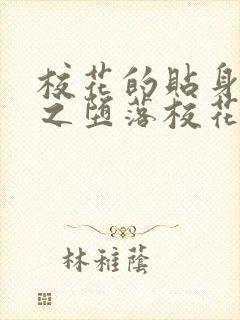 校花的貼身
之堕落校花
林稚蔭